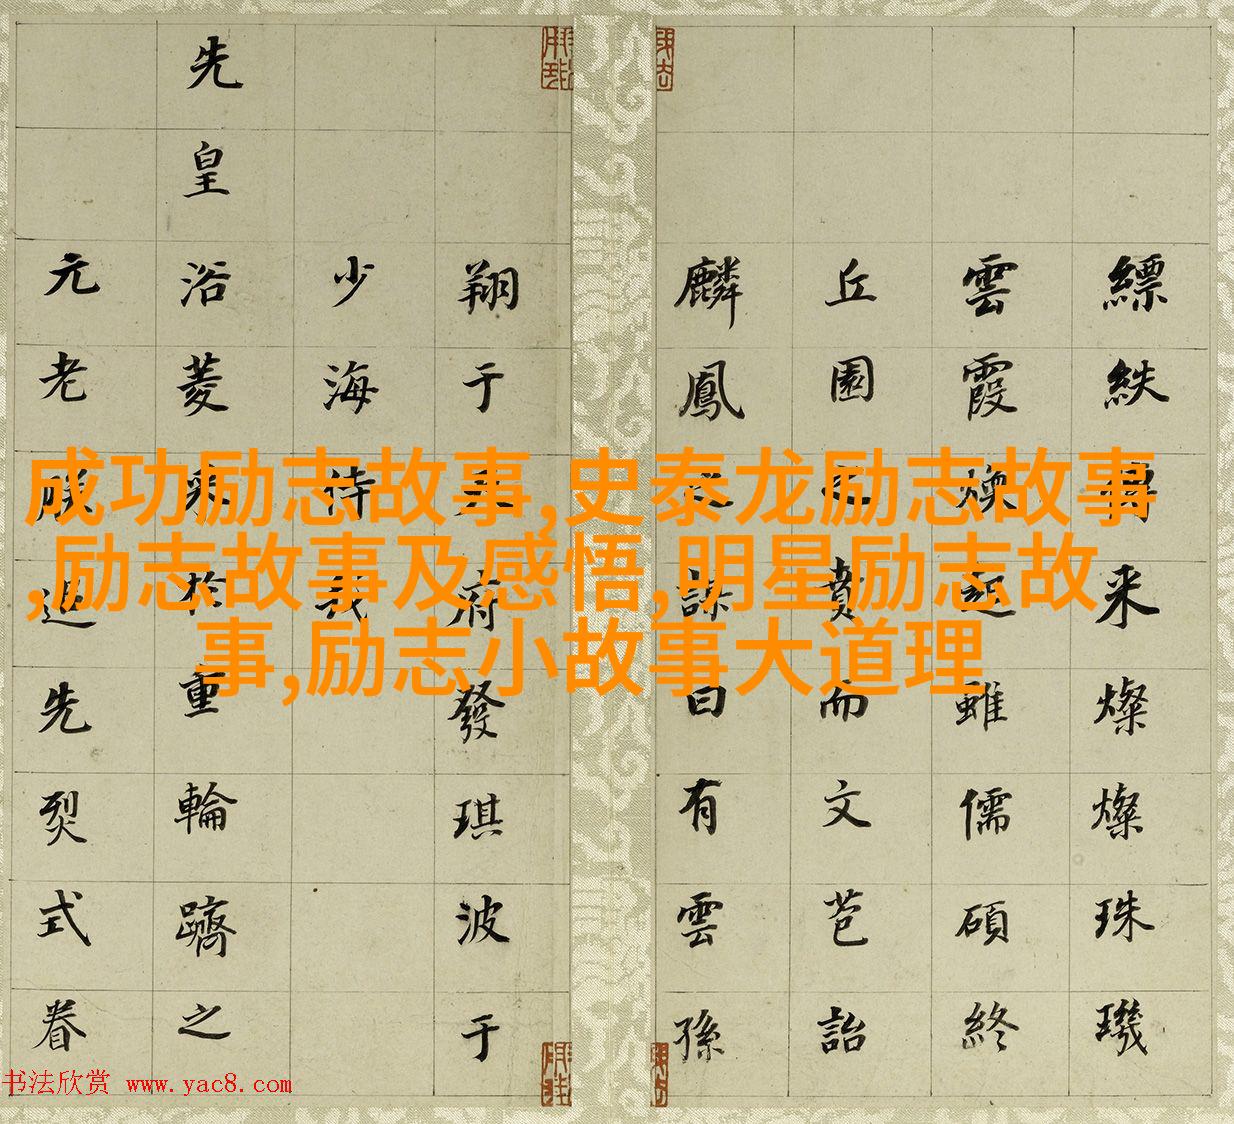 成功励志故事,史泰龙励志故事
,励志故事及感悟,明星励志故
事,励志小故事大道理
縹紩来燦燦珠璣
雲霞煥起雖儒碩終
丘園之賁而文苞詒
麟鳳之曰有雲孫
翔于府發琪波于
少海待我
先皇浴菱采於重輪躋之
元老先烈式眷
书法欣赏 www.yac8.com